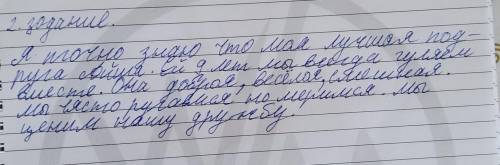 2. задание.
Я точно знаю что моя лучшая под-
руга Ей 9 лет мы всегда гуляем
вместе. Она добрая, весёлая, смешная.
мы часто ругаемся но меримся. мы
ценим нашу дружбу.